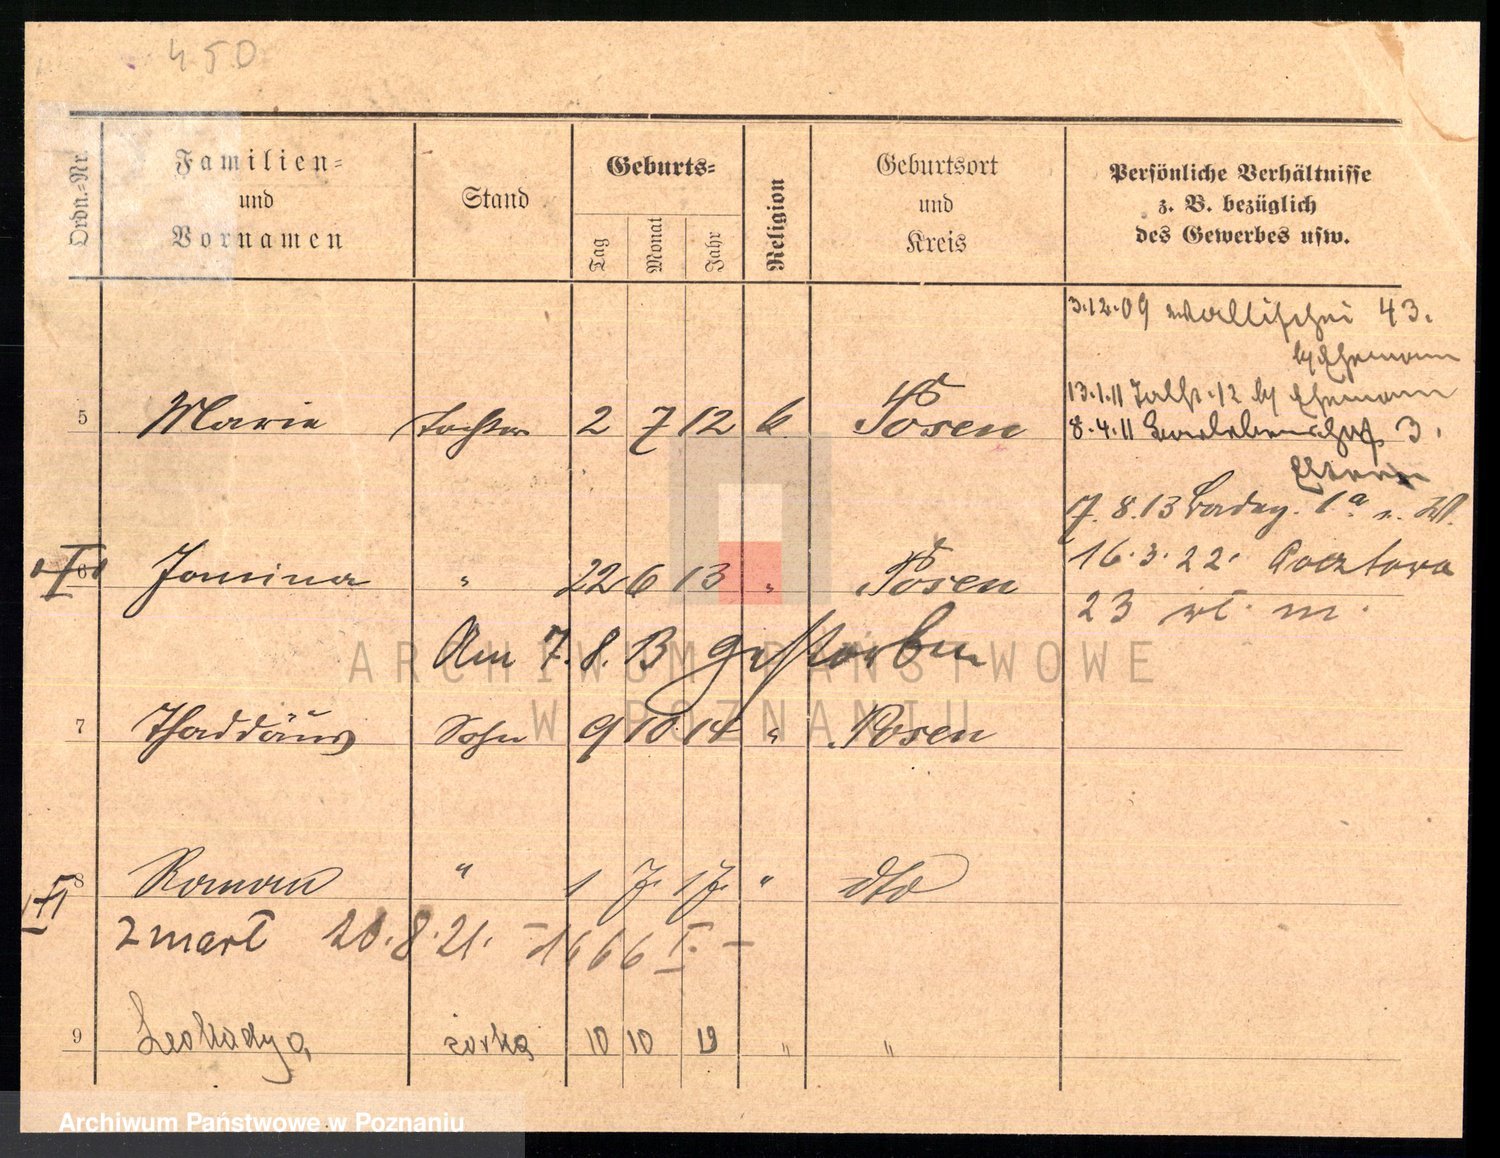 450
Ordn.=Nr.
Familien=
und
Vornamen
Stand
Geburts=
Tag
Monat
Jahr
Religion
Geburtsort
und
Kreis
Persönliche Verhältnisse
z. B. bezüglich
des Gewerbes usw.
3.12.09 Wallischei 43.
b/ Ehemann
13.1.11 12 b/ Ehemann
5 Marie Tochter 2 7 12 k. Posen
8.4.11 3.
Eltern
7.8.13 1a
16.3.22. Pocztowa
6 Janina " 22 6 13 " Posen
23 m.
Am 7.8.13 gestorben
7 Thaddäus Sohn 9 10 14 " Posen
8 Roman " 1 7. 17. " dto
zmarł 20.8.21. – 1666 I. –
9 Leokadya, córka 10 10 19 " "
ARCHIWUM PAŃSTWOWE
W POZNANIU
Archiwum Państwowe w Poznaniu